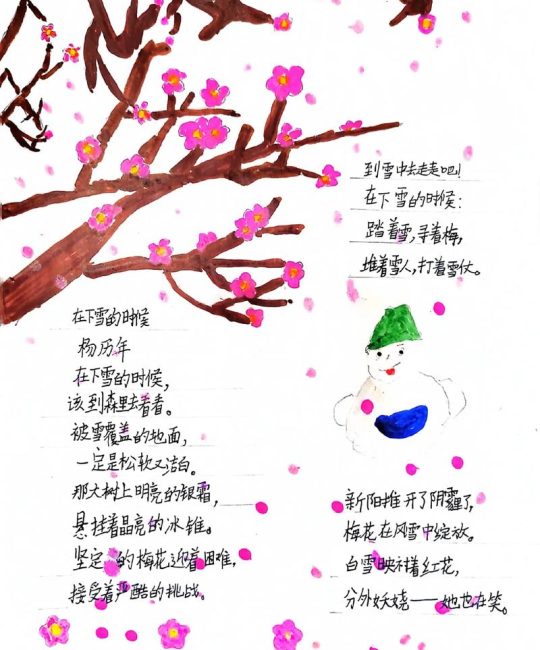 在下雪的时候
杨历年
在下雪的时候，
该到森里去看看。
被雪覆盖的地面，
一定是松软又洁白。
那大树上明亮的银霜，
悬挂着晶亮的冰锥。
坚定的梅花迎着困难，
接受着严酷的挑战。
到雪中去走走吧！
在下雪的时候：
踏着雪，寻着梅，
堆着雪人，打着雪仗。
新阳推开了阴霾了，
梅花在风雪中绽放。
白雪映衬着红花，
分外妖娆——她也在笑。